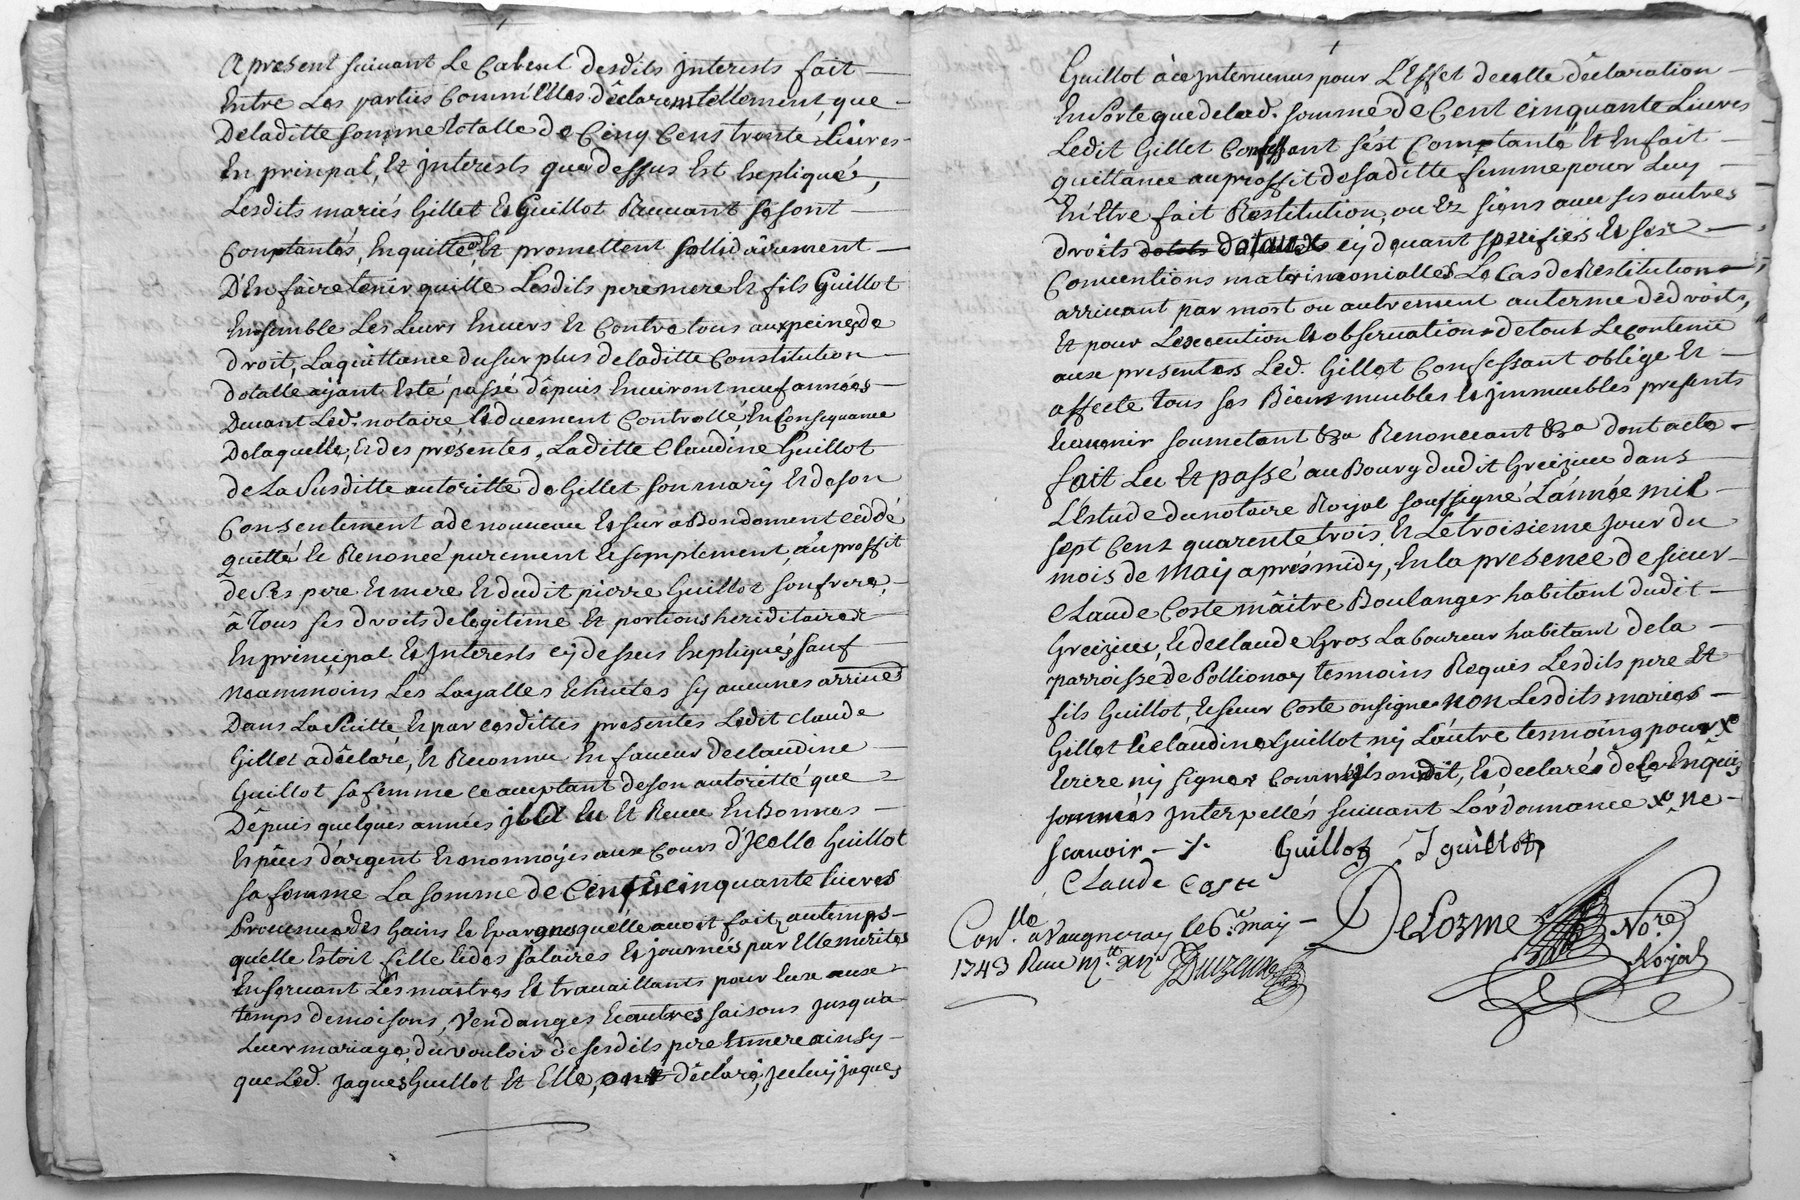 A present suivant Le Calcul desdits Interests fait
Entre Les parties Comm'Elles déclarent tellement, que
De laditte somme totalle de Cinq Cens trente Livres
En prinpal, Et Interests que dessus Est Expliquée,
Lesdits mariés Gillet Et Guillot Recevant se sont
Contantés, En quitte, Et promettent sollidairement
D'En faire tenir quitte Lesdits pere mere Et fils Guillot
Ensemble Les Leurs Envers Et Contre tous aux peines de
droit, La quittance du surplus de laditte Constitution
dotalle ayant Esté passé dépuis Environt neuf années
Devant Led. notaire, Et duement Controllé, En Consequance
De laquelle, Et des présentes, Laditte Claudine Guillot
de La Susditte autoritté de Gillet son mary Et de son
Consentement a de nouveau Et sur abondoment ceddé
quitté Et Renoncé purement Et simplement, au proffit
de Ses pere Et mere Et dudit pierre Guillot son frere,
à Tous ses droits de legitime Et portions heriditaires
En principal Et Interests cy dessus Expliqués, sauf
néammoins Les Loyalles Echuëtes sy aucunes arrivés
Dans La Suitte, Et par cesdittes presentes Ledit Claude
Gillet a déclaré, Et Reconnu En faveur de Claudine
Guillot sa femme acceptant de son autoritté que
Dépuis quelques années il a Eu Et Receu En Bonnes
Espèces d'argent Et monnoyes aux Cours d'Icelle Guillot
sa femme La somme de Cent cinquante livres
Provenue des Gains Et Epargnes qu'elle avoit fait au temps
qu'elle Estoit fille Et des salaires Et journées par Elle mérités
En servant Les maitres Et travaillants pour Eux aux
temps de moisons, Vendanges Et autres saisons jusqu'a
Leur mariage, du vouloir de sesdits pere Et mere ainsy
que Led. Jaques Guillot Et Elle, ont déclaré, Icelluy Jaques
Guillot à ce Intervenus pour L'Effet de cette déclaration
En sorte que de lad. somme de Cent cinquante Livres
Ledit Gillet Confessant s'est Comptanté Et En fait
quittance au proffit de saditte femme pour Luy
En Etre fait Restitution, ou Ez siens avec ses autres
droits dotaux cy devant spécifiés Et ses
Conventions matrimonialles Le Cas de Restitution
arrivant par mort ou autrement au terme de droits,
Et pour L'execution Et observation de tout Le contenu
aux presentes Led. Gillet Confessant oblige Et
affecte tous ses Biens meubles Et immeubles presents
Et avenir soumetant Etca Renonceant Etca dont acte
fait Lu Et passé au Bourg dudit Greizieu dans
L'Estude du notaire Royal soussigné L'année mil
sept Cent quarente trois, Et Le troisieme Jour du
mois de May après midy, En la presence de sieur
Claude Coste maître Boulanger habitant dudit
Greizieu, Et de Claude Gros Laboureur habitant de la
parroisse de Pollionay tesmoins Requis Lesdits pere Et
fils Guillot, Et sieur Coste on signé non Lesdits mariés
Gillet Et Claudine Guillot ny L'autre tesmoing pour
Ecrire ny signer Comm'ils ont dit, Et déclarés de ce Enquis
sommés Interpellés suivant L'ordonnance ne
scavoir
Guillot J guillot
Claude Coste
DeLorme No.re
Royal
Con.llé a Vaugneray le 6.e may
1743 Reçu